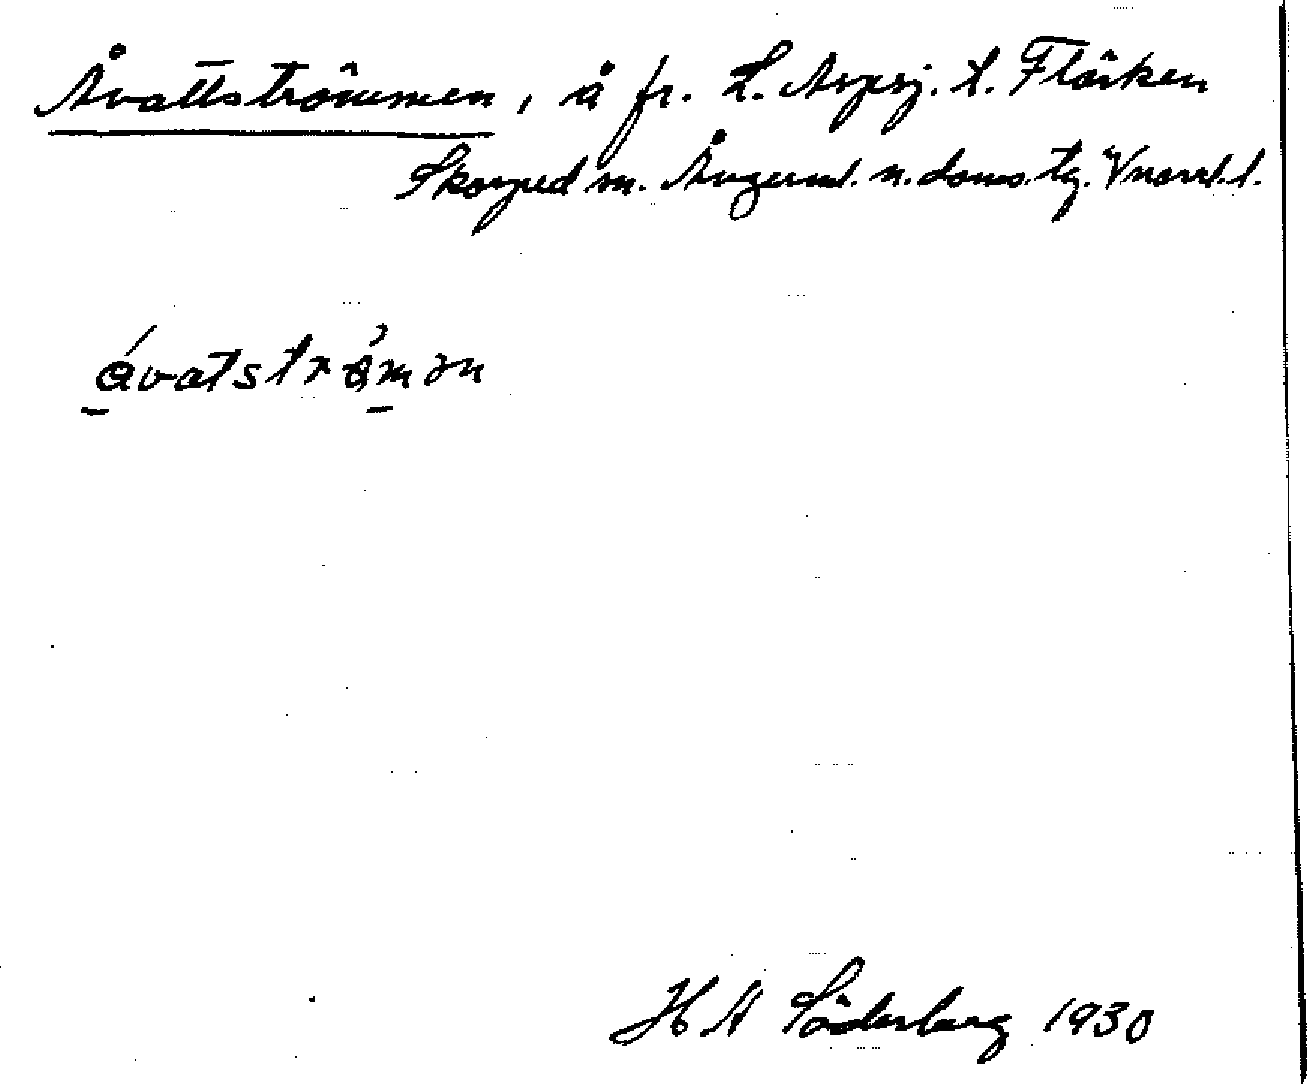 Åvattströmmen, å fr. L. Arpsj. t. Flärken
Skorped sn. Ångerml. n. doms. tg. Vnorrl. l.
åvatstrømən
H A Söderberg 1930